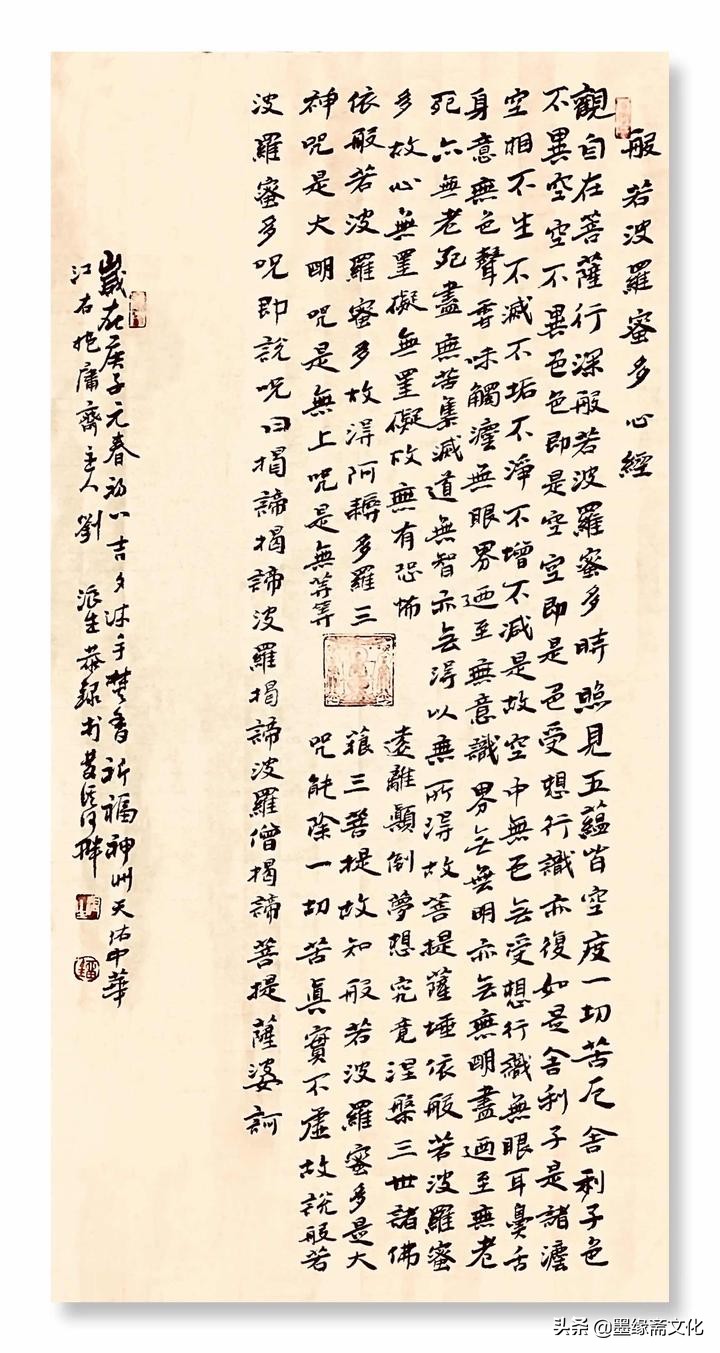 般若波羅蜜多心經
觀自在菩薩行深般若波羅蜜多時照見五蘊皆空度一切苦厄舍利子色
不異空空不異色色即是空空即是色受想行識亦復如是舍利子是諸灋
空相不生不滅不垢不淨不增不減是故空中無色无受想行識無眼耳鼻舌
身意無色聲香味觸灋無眼界迺至無意識界无無明亦无無明盡迺至無老
死亦無老死盡無苦集滅道無智亦无得以無所得故菩提薩埵依般若波羅蜜
多故心無罣礙無罣礙故無有恐怖遠離顛倒夢想究竟涅槃三世諸佛
依般若波羅蜜多故得阿耨多羅三藐三菩提故知般若波羅蜜多是大
神咒是大明咒是無上咒是無等等咒能除一切苦真實不虛故說般若
波羅蜜多咒即說咒曰揭諦揭諦波羅揭諦波羅僧揭諦菩提薩婆訶
歲在庚子元春初八吉夕沐手焚香祈福神州天佑中華
江右抱庸齋主人劉派生恭録於河畔
头条 @墨缘斋文化